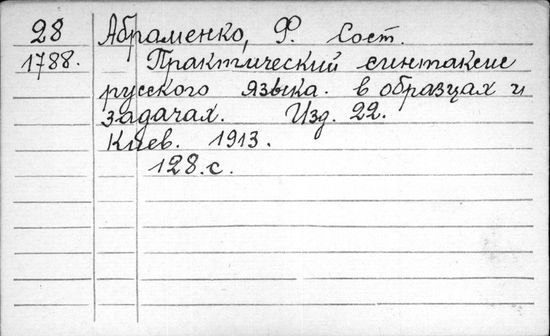 28 Абраменко, Ф. Сост.
1788. Практический синтаксис
русского языка. в образцах и
задачах. Изд. 22.
Киев. 1913.
128.с.